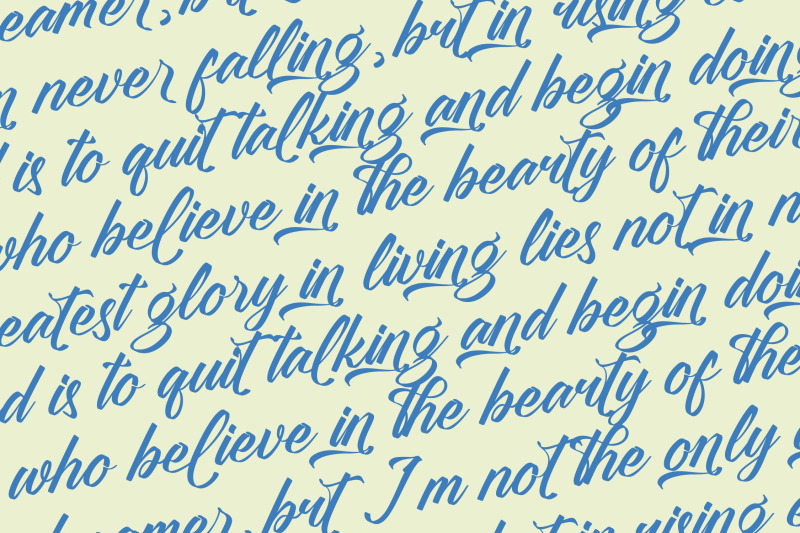 never falling, but in rising
is to quit talking and begin doing
who believe in the beauty of their
greatest glory in living lies not in
is to quit talking and begin doing
who believe in the beauty of the
dreamer, but I'm not the only
but in rising